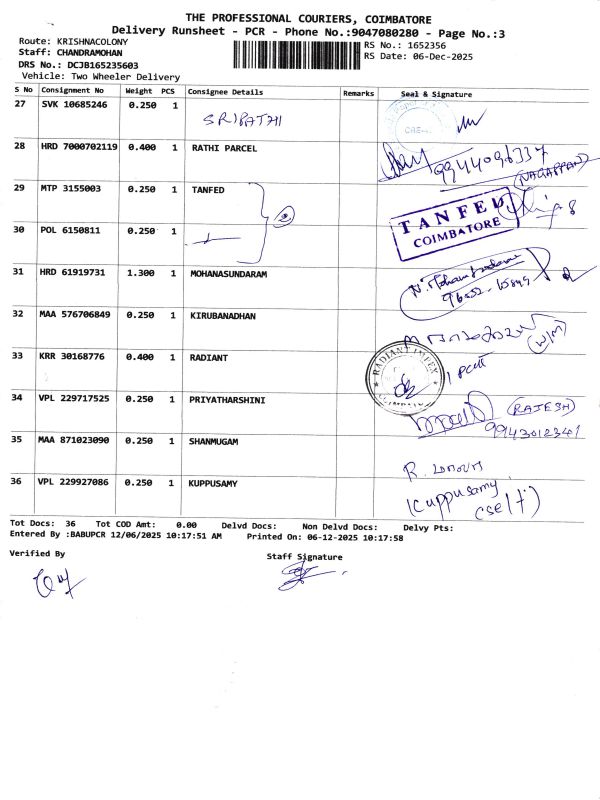 THE PROFESSIONAL COURIERS, COIMBATORE
Delivery Runsheet - PCR - Phone No.:9047080280 - Page No.:3
Route: KRISHNACOLONY
RS No.: 1652356
Staff: CHANDRAMOHAN
RS Date: 06-Dec-2025
DRS No.: DCJB165235603
Vehicle: Two Wheeler Delivery
S No Consignment No Weight PCS Consignee Details Remarks Seal & Signature
27 SVK 10685246 0.250 1 SRIPATHI
28 HRD 7000702119 0.400 1 RATHI PARCEL
9944096337
(NAGAPPAN)
29 MTP 3155003 0.250 1 TANFED
TANFED
COIMBATORE
30 POL 6150811 0.250 1
31 HRD 61919731 1.300 1 MOHANASUNDARAM
N. Mohanasundaram
32 MAA 576706849 0.250 1 KIRUBANADHAN
(W/M)
33 KRR 30168776 0.400 1 RADIANT
RADIANT IMPEX
COIMBATORE
34 VPL 229717525 0.250 1 PRIYATHARSHINI
(RAJESH)
9943012341
35 MAA 871023090 0.250 1 SHANMUGAM
36 VPL 229927086 0.250 1 KUPPUSAMY
Kuppusamy
(self)
Tot Docs: 36 Tot COD Amt: 0.00 Delvd Docs: Non Delvd Docs: Delvy Pts:
Entered By :BABUPCR 12/06/2025 10:17:51 AM Printed On: 06-12-2025 10:17:58
Verified By
Staff Signature